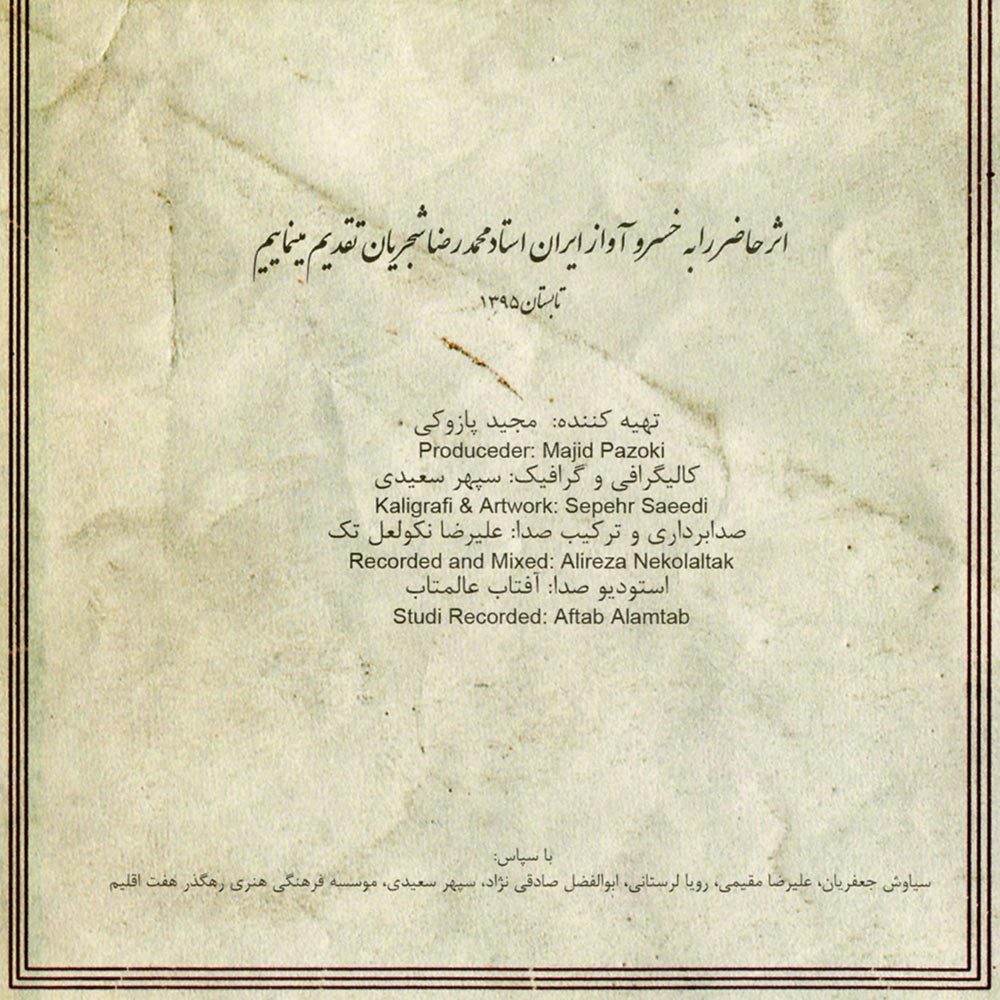 اثر حاضر را به خسرو آواز ایران استاد محمدرضا شجریان تقدیم مینماییم
تابستان ۱۳۹۵
تهیه کننده: مجید پازوکی
Produceder: Majid Pazoki
کالیگرافی و گرافیک: سپهر سعیدی
Kaligrafi & Artwork: Sepehr Saeedi
صدابرداری و ترکیب صدا: علیرضا نکولعل تک
Recorded and Mixed: Alireza Nekolaltak
استودیو صدا: آفتاب عالمتاب
Studi Recorded: Aftab Alamtab
با سپاس:
سیاوش جعفریان، علیرضا مقیمی، رویا لرستانی، ابوالفضل صادقی نژاد، سپهر سعیدی، موسسه فرهنگی هنری رهگذر هفت اقلیم